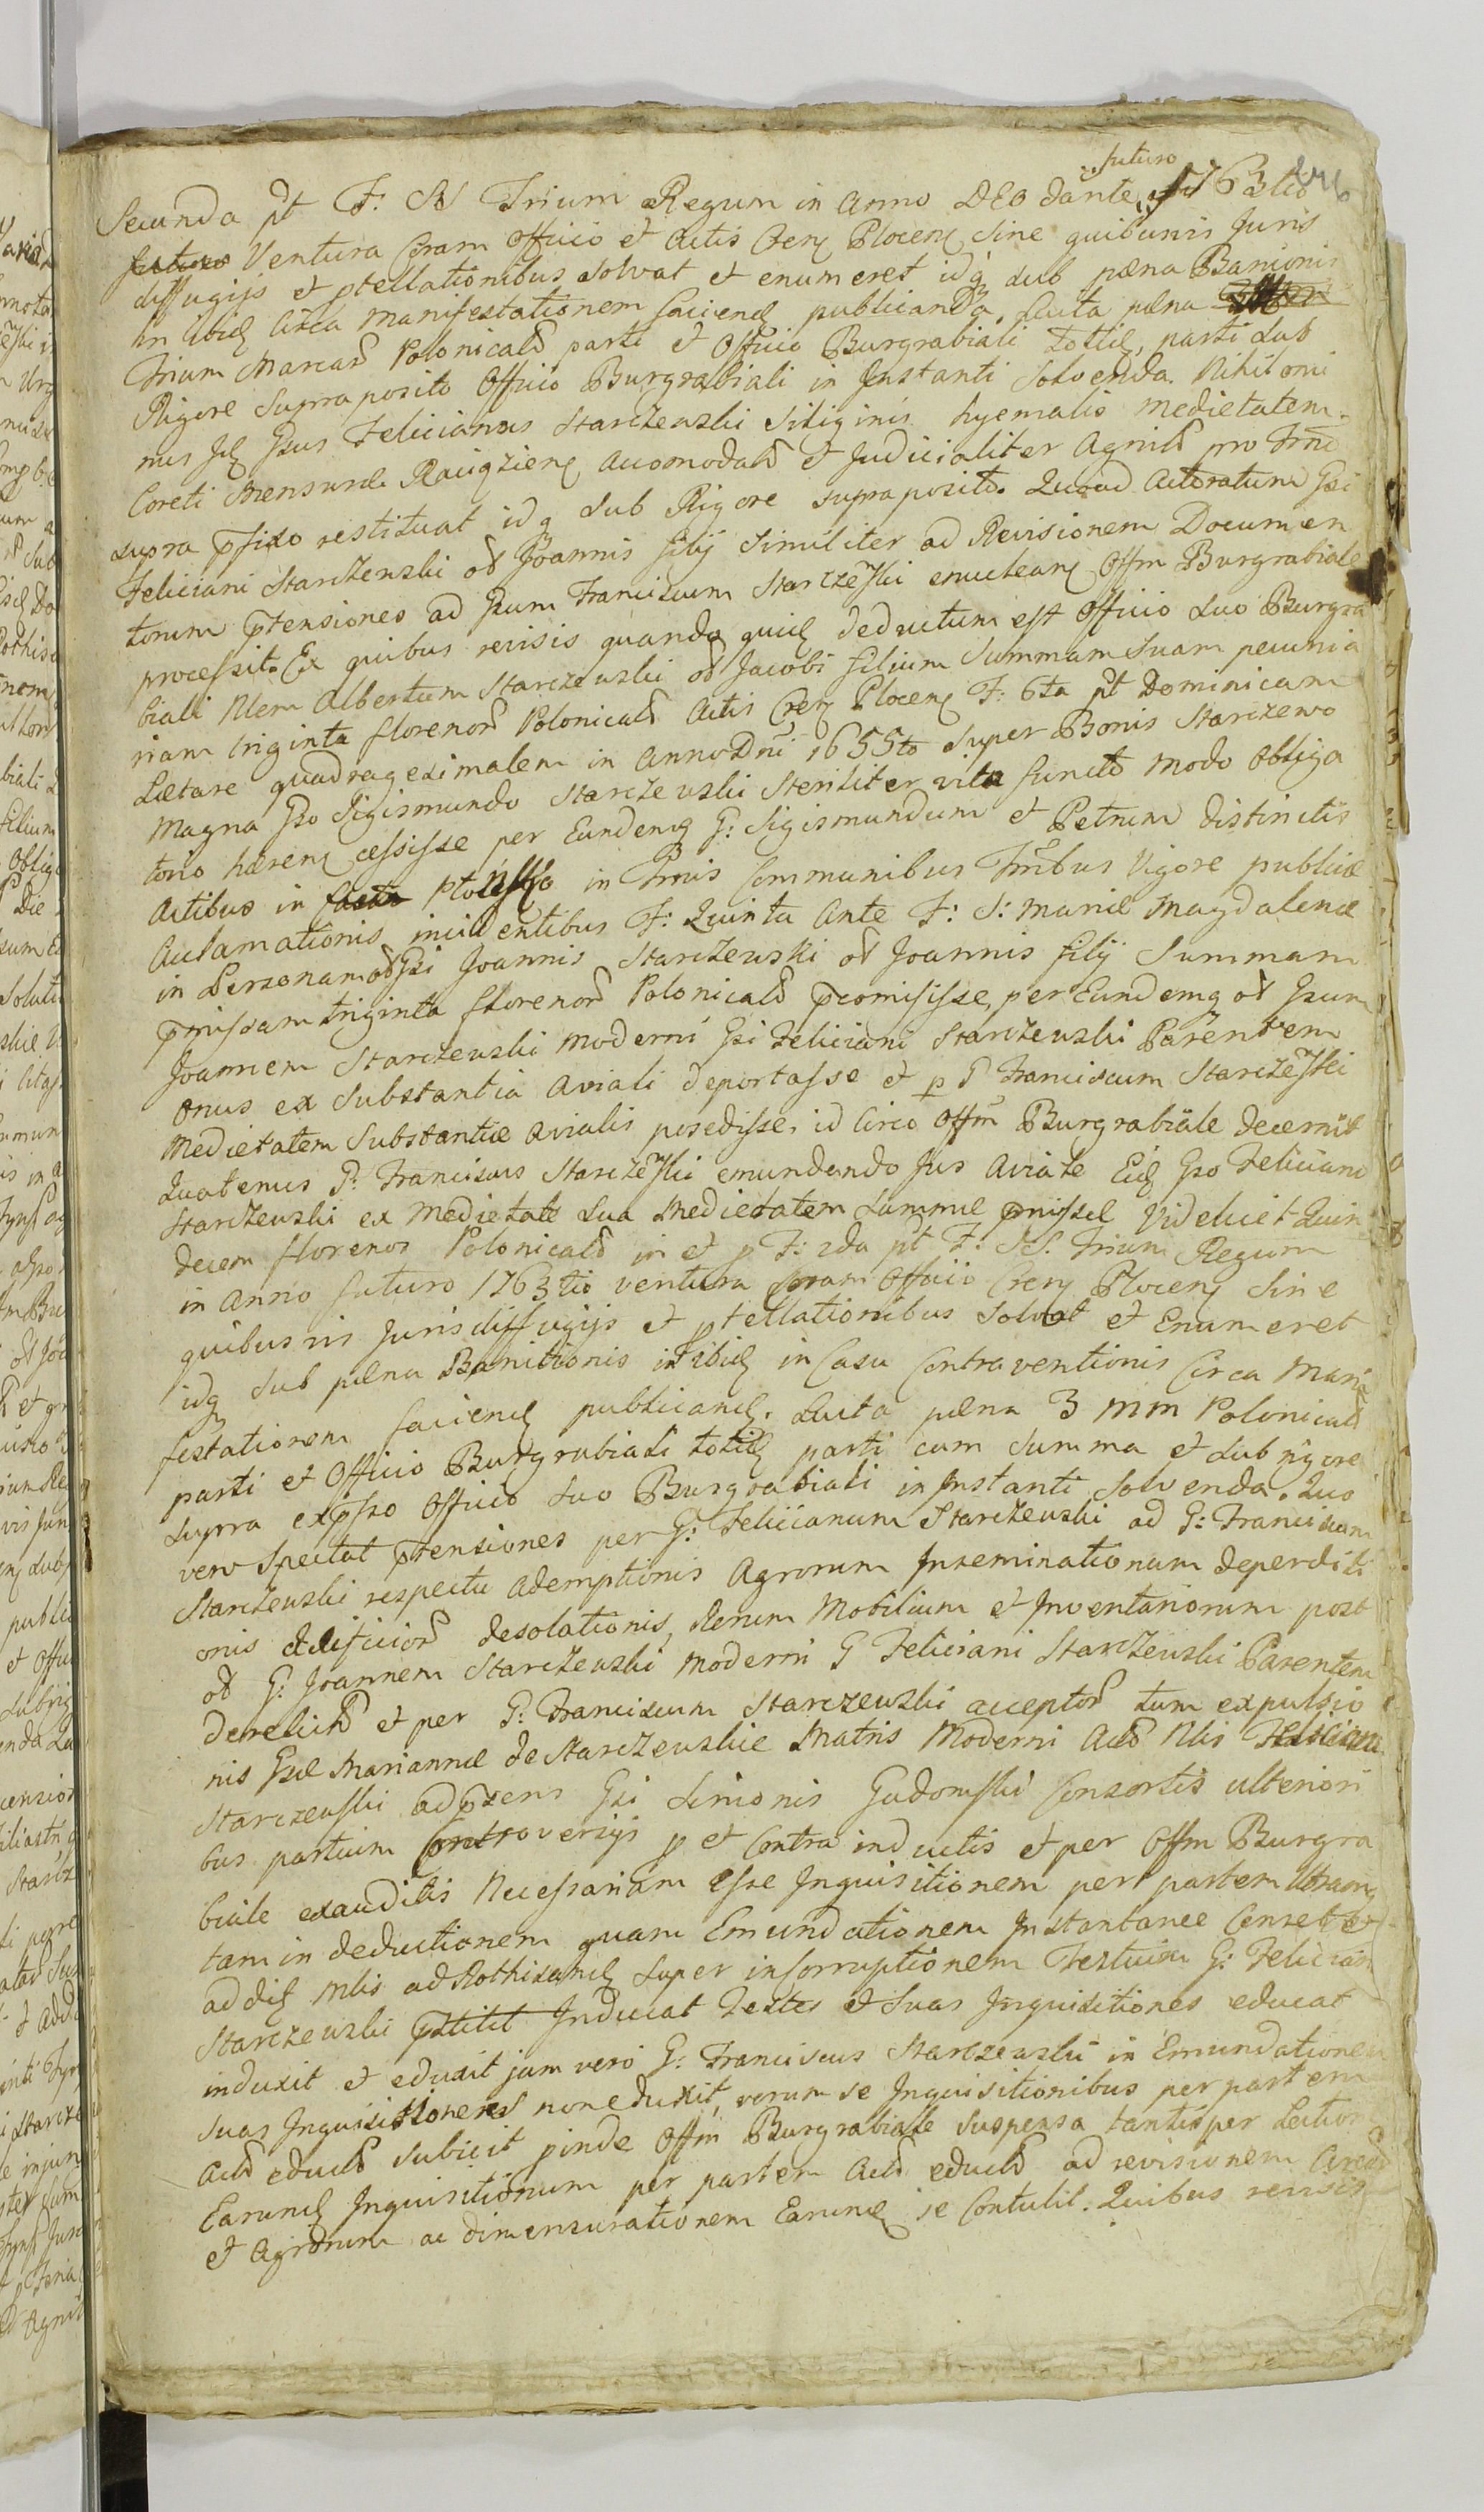 futuro
Secunda pt F. SS Trium Regum in anno DEO dante 1763tio
futuro Ventura Coram officio et Actis Cren Plocen sine quibusvis Juris
diffugijs et ptellationibus solvat et enumeret idq sub pæna Banionis
in ibid circa manifestationem faciend publicanda. Luta pæna
Trium Marcar Polonicaliu parti et Officio Burgrabiali totid, parti sub
Rigore supra posito Officio Burgrabiali in Instanti solvenda. Nihilomi
nus Id Gsus Felicianus Starczewski siliginis hyemalis medietatem
Coreti mensuræ Raciązien accomodat et Judicialiter Agnit pro Trno
supra pfixo restituat idq sub Rigore supraposito. Quoad Actoratum Gsi
Feliciani Starczewski ol Joannis filij similiter ad Revisionem Documen
torum ptensiones ad Gsum Franciscum Starczewski enuclean Offm Burgrabiale
processit. Ex quibus revisis quandoquid deductum est Officio suo Burgra
biali Nlem Albertum Starczewski ol Jacobi filium Summam suam pecunia
riam triginta florenor Polonicaliu Actis Cren Plocen F. 6ta pt Dominicam
Lætare quadragesimalem in anno Dni 1655to super Bonis Starczewo
Magna Gso Sigismundo Starczewski steriliter vita functo modo obliga
torio hæren cessisse per Eundemq G: Sigismundum et Petrum distinctis
Actibus in in Trnis Communibus Trnibus Vigore publicæ
Acclamationis incidentibus F: Quinta Ante F: S: Mariæ Magdalenæ
in Personam ol Gsi Joannis Starczewski ol Joannis filij Summam
pmissam triginta florenor Polonicaliu promisisse, per Eundemq ol Gsum
Joannem Starczewski moderni Gsi Feliciani Starczewski Parentem
onus ex substantia aviali deportasse et p G Franciscum Starczewski
Medietatem substantiæ avialis posedisse, id circo Offm Burgrabiale decernit
Quatenus G. Franciscus Starczewski emundando Jus Aviale Eid Gso Feliciano
Starczewski ex medietate sua Medietatem summæ pmissæ Videlicet Quin
decem florenos Polonicales in et p F: 2da pt F: SS. Trium Regum
in anno futuro 1763tio ventura Coram Officio Cren Plocen sine
quibusvis Juris diffugijs et ptellationibus solvat et Enumeret
idq sub pæna Banitionis in ibid in Casu Contraventionis Circa Mani
festationem faciend publicand. Lucta pæna 3 mm Polonical
parti et Officio Burgrabiali totid parti cum summa et sub rigore
supra expsso Officio suo Burgrabiali in Instanti solvenda. Quo
vero spectat ptensiones per G: Felicianum Starczewski ad G: Franciscum
Starczewski respectu ademptionis Agrorum Inseminationum deperditi
onis ædificior desolationis, Rerum Mobilium et Inventariorum post
ol G. Joannem Starczewski moderni G Feliciani Starczewski Parentem
derelict et per G. Franciscum Starczewski acceptor tum expulsio
nis Gsæ Mariannæ de Starczewskie Matris Moderni Act Nlis Feliciani
Starczewski adpræsens Gsi Simonis Gadomski Consortis ulteriori
bus partium Controversijs p et Contra inductis et per Offm Burgra
biale exauditis Necessariam esse Inquisitionem per partem utramq
tam in deductionem quam Emundationem Instantanee Censet et
ad dis Mlis ad Rothisand super inforruptionem Testium G: Felician
Starczewski pstitit Inducat Testes et suas Inquisitiones educat
induxit et eduxit jam vero G: Franciscus Starczewski in Emundationem
suas Inquisitiones non eduxit, verum se Inquisitionibus per partem
Act educt subicit pinde Offm Burgrabiale suspensa tantisper Lection
Earund Inquisitionum per partem Act educt ad revisionem Arear
et Agrorum ac dimensurationem Earund se Contulit. Quibus revisis